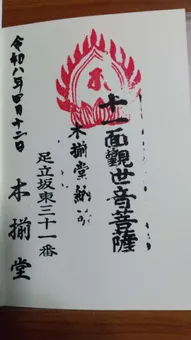 十一面觀世音菩薩
木揃堂納
足立坂東三十一番
木揃堂
令和八年四月十二日